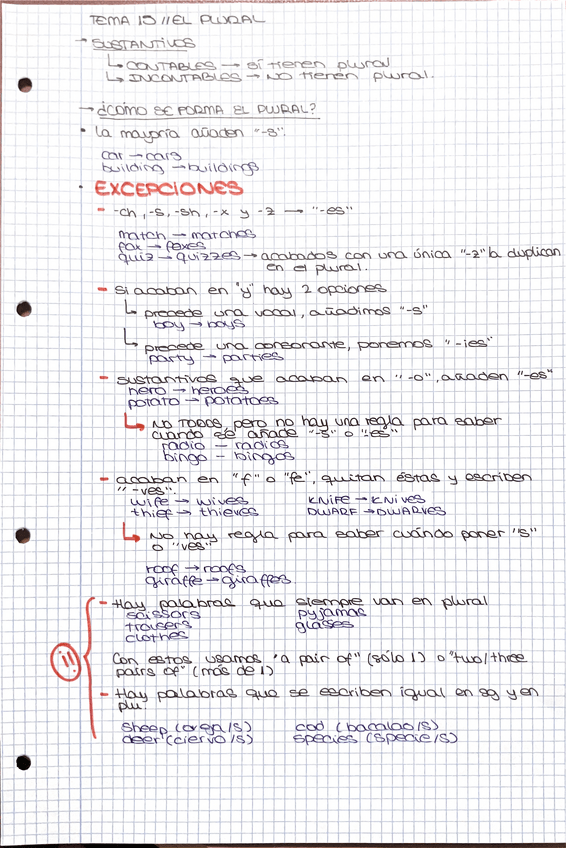 TEMA 10 // EL PLURAL
→ SUSTANTIVOS
↳ CONTABLES → sí tienen plural
↳ INCONTABLES → NO tienen plural.
→ ¿CÓMO SE FORMA EL PLURAL?
• la mayoría añaden "-s":
car → cars
building → buildings
• EXCEPCIONES
- -ch, -s, -sh, -x y -z → "-es"
match → matches
fax → faxes
quiz → quizzes → acabados con una única "-z" la duplican
en el plural.
- Si acaban en "y" hay 2 opciones
↳ precede una vocal, añadimos "-s"
boy → boys
↳ precede una consonante, ponemos "-ies"
party → parties
- sustantivos que acaban en "-o", añaden "-es"
hero → heroes
potato → potatoes
↳ NO TODOS, pero no hay una regla para saber
cuándo se añade "-s" o "-es"
radio - radios
bingo - bingos
- acaban en "f" o "fe", quitan éstas y escriben
"-ves".
wife → wives KNIFE → KNIVES
thief → thieves DWARF → DWARVES
↳ No hay regla para saber cuándo poner "s"
o "ves"
roof → roofs
giraffe → giraffes.
- Hay palabras que siempre van en plural
scissors pyjamas
trousers glasses
clothes
¡!
Con estos usamos "a pair of" (sólo 1) o "two/three
pairs of" (más de 1)
- Hay palabras que se escriben igual en sg y en
plu.
Sheep (oveja/s) cod (bacalao/s)
deer (ciervo/s) species (specie/s)